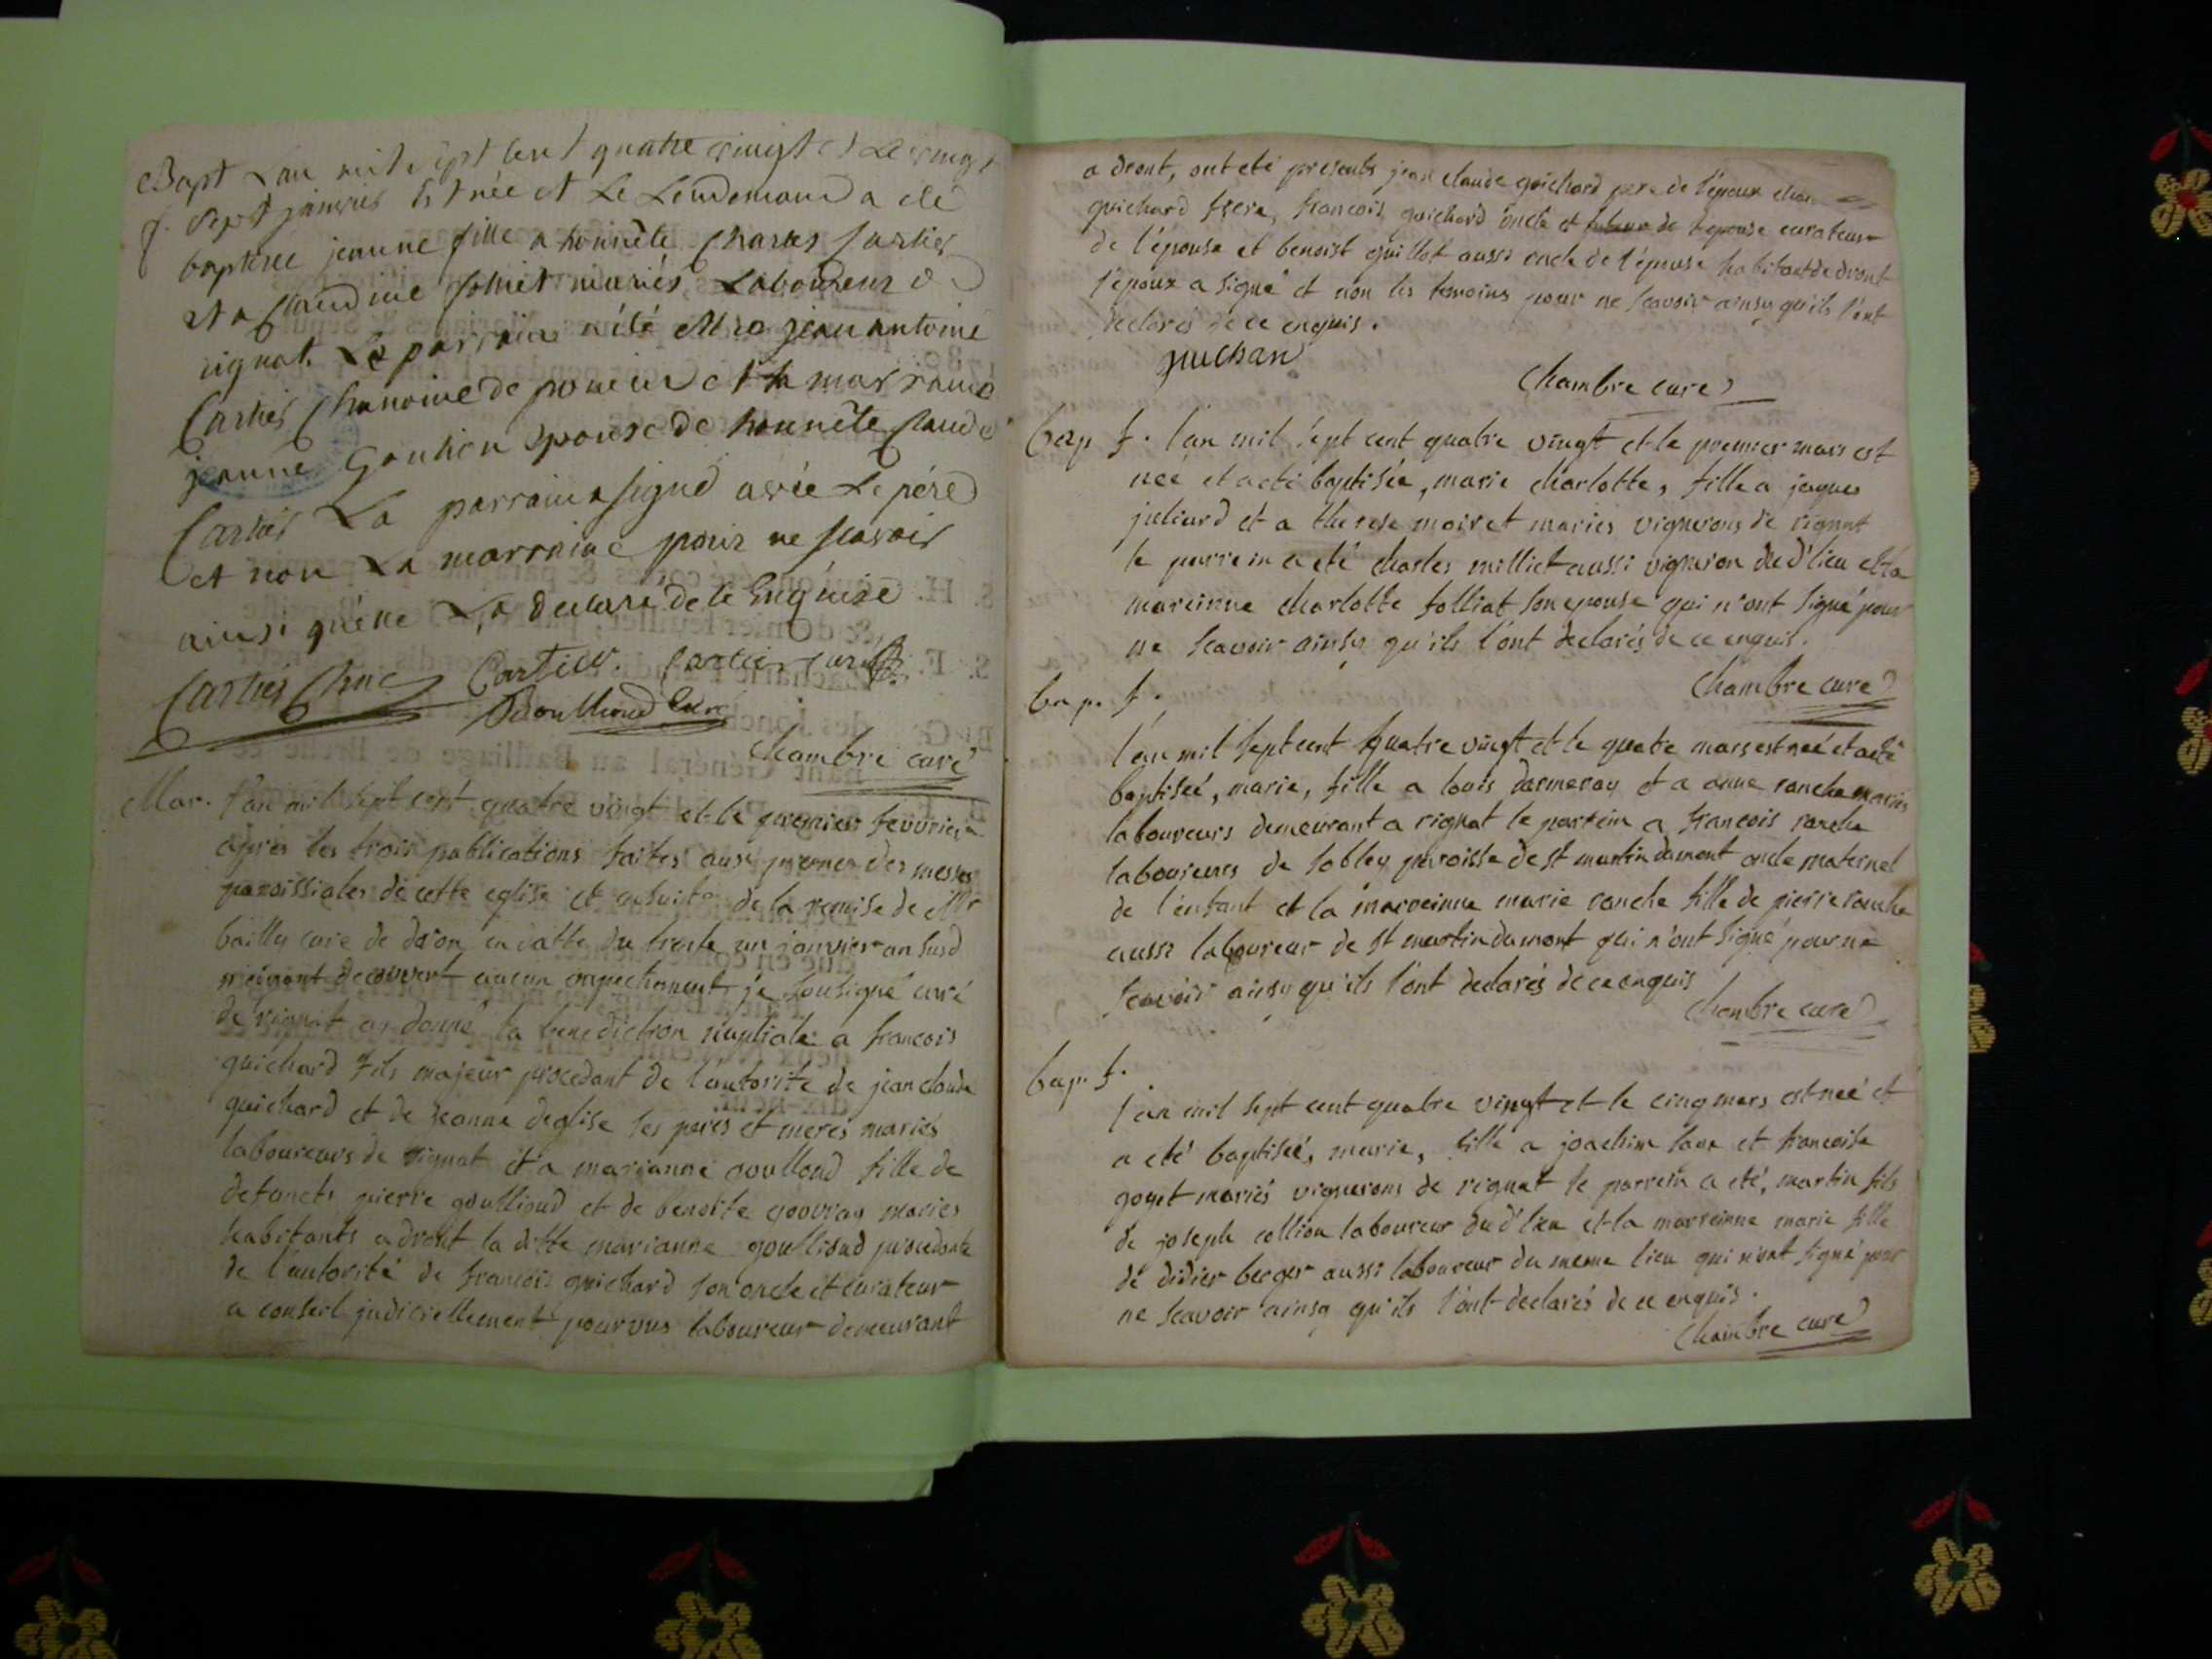 Bapt L'an mil sept cent quatre vingt et le vingt
f. sept janvier Est née et Le Lendemain a été
baptisée jeanne fille a honnête Charles Cartier
et a Claudine mariés Laboureur a
rignat. Le parrain a été Mre jean antoine
Cartier Chanoine de poncin et la marraine
jeanne Epouse de honnête Claude
Cartier La parrain a signé avec Le père
et non La marraine pour ne scavoir
ainsi qu'elle L'a declaré de ce Enquise
Cartier Chne Cartier. Cartier curé
Curé
Chambre curé
Mar. l'an mil sept cent quatre vingt et le premier fevvrier
après les trois publications faites aux prones des messes
paroissiales de cette eglise et ensuite de la remise de Mr
bailly curé de druon en datte du trente un janvier an susd
n'ayant decouvert aucun empechement je sousigné curé
de rignat ay donné la benediction nuptiale a francois
guichard fils majeur procedant de l'autorité de jean claude
guichard et de jeanne deglise ses peres et meres mariés
laboureurs de rignat et a marianne goulloud fille de
defuncts pierre goullioud et de benoite gouvray maries
habitants a dront la ditte marianne goullioud procedante
de l'autorité de francois guichard son oncle et curateur
a conseil judiciellement pourvus laboureur demeurant
a dront, ont eté presents jean claude guichard pere de l'epoux
guichard frere, francois guichard oncle et de l'epouse curateur
de l'épouse et benoist guillot aussi oncle de l'epouse habitant de dront
l'epoux a signé et non les temoins pour ne scavoir ainsy qu'ils l'ont
declarés de ce enquis.
guichard
Chambre curé
bap f. l'an mil sept cent quatre vingt et le premier mars est
neé et a eté baptisée, marie charlotte, fille a jaques
juliard et a therese moiret mariés vignerons de rignat
le parrein a eté charles milliet aussi vigneron du d' lieu et la
mareinne charlotte folliat son epouse qui n'ont signé pour
ne scavoir ainsy qu'ils l'ont declarés de ce enquis.
Chambre curé
bap. f.
l'an mil sept cent quatre vingt et le quatre mars est neé et a eté
baptiseé, marie, fille a louis darmeray et a anne ranche mariés
laboureurs demeurant a rignat le parrein a francois ranche
laboureurs de soblay paroisse de st martin du mont oncle maternel
de l'enfant et la marreinne marie ranche fille de pierre ranche
aussi laboureur de st martin du mont qui n'ont signé pour ne
scavoir ainsy qu'ils l'ont declarés de ce enquis
Chambre curé
bap. f.
l'an mil sept cent quatre vingt et le cinq mars est neé et
a eté baptiseé, marie, fille a joachim et francoise
goyet mariés vignerons de rignat le parrein a eté, martin fils
de joseph collion laboureur du d' lieu et la marreinne marie fille
de didier berger aussi laboureur du meme lieu qui n'ont signé pour
ne scavoir ainsy qu'ils l'ont declarés de ce enquis.
Chambre curé